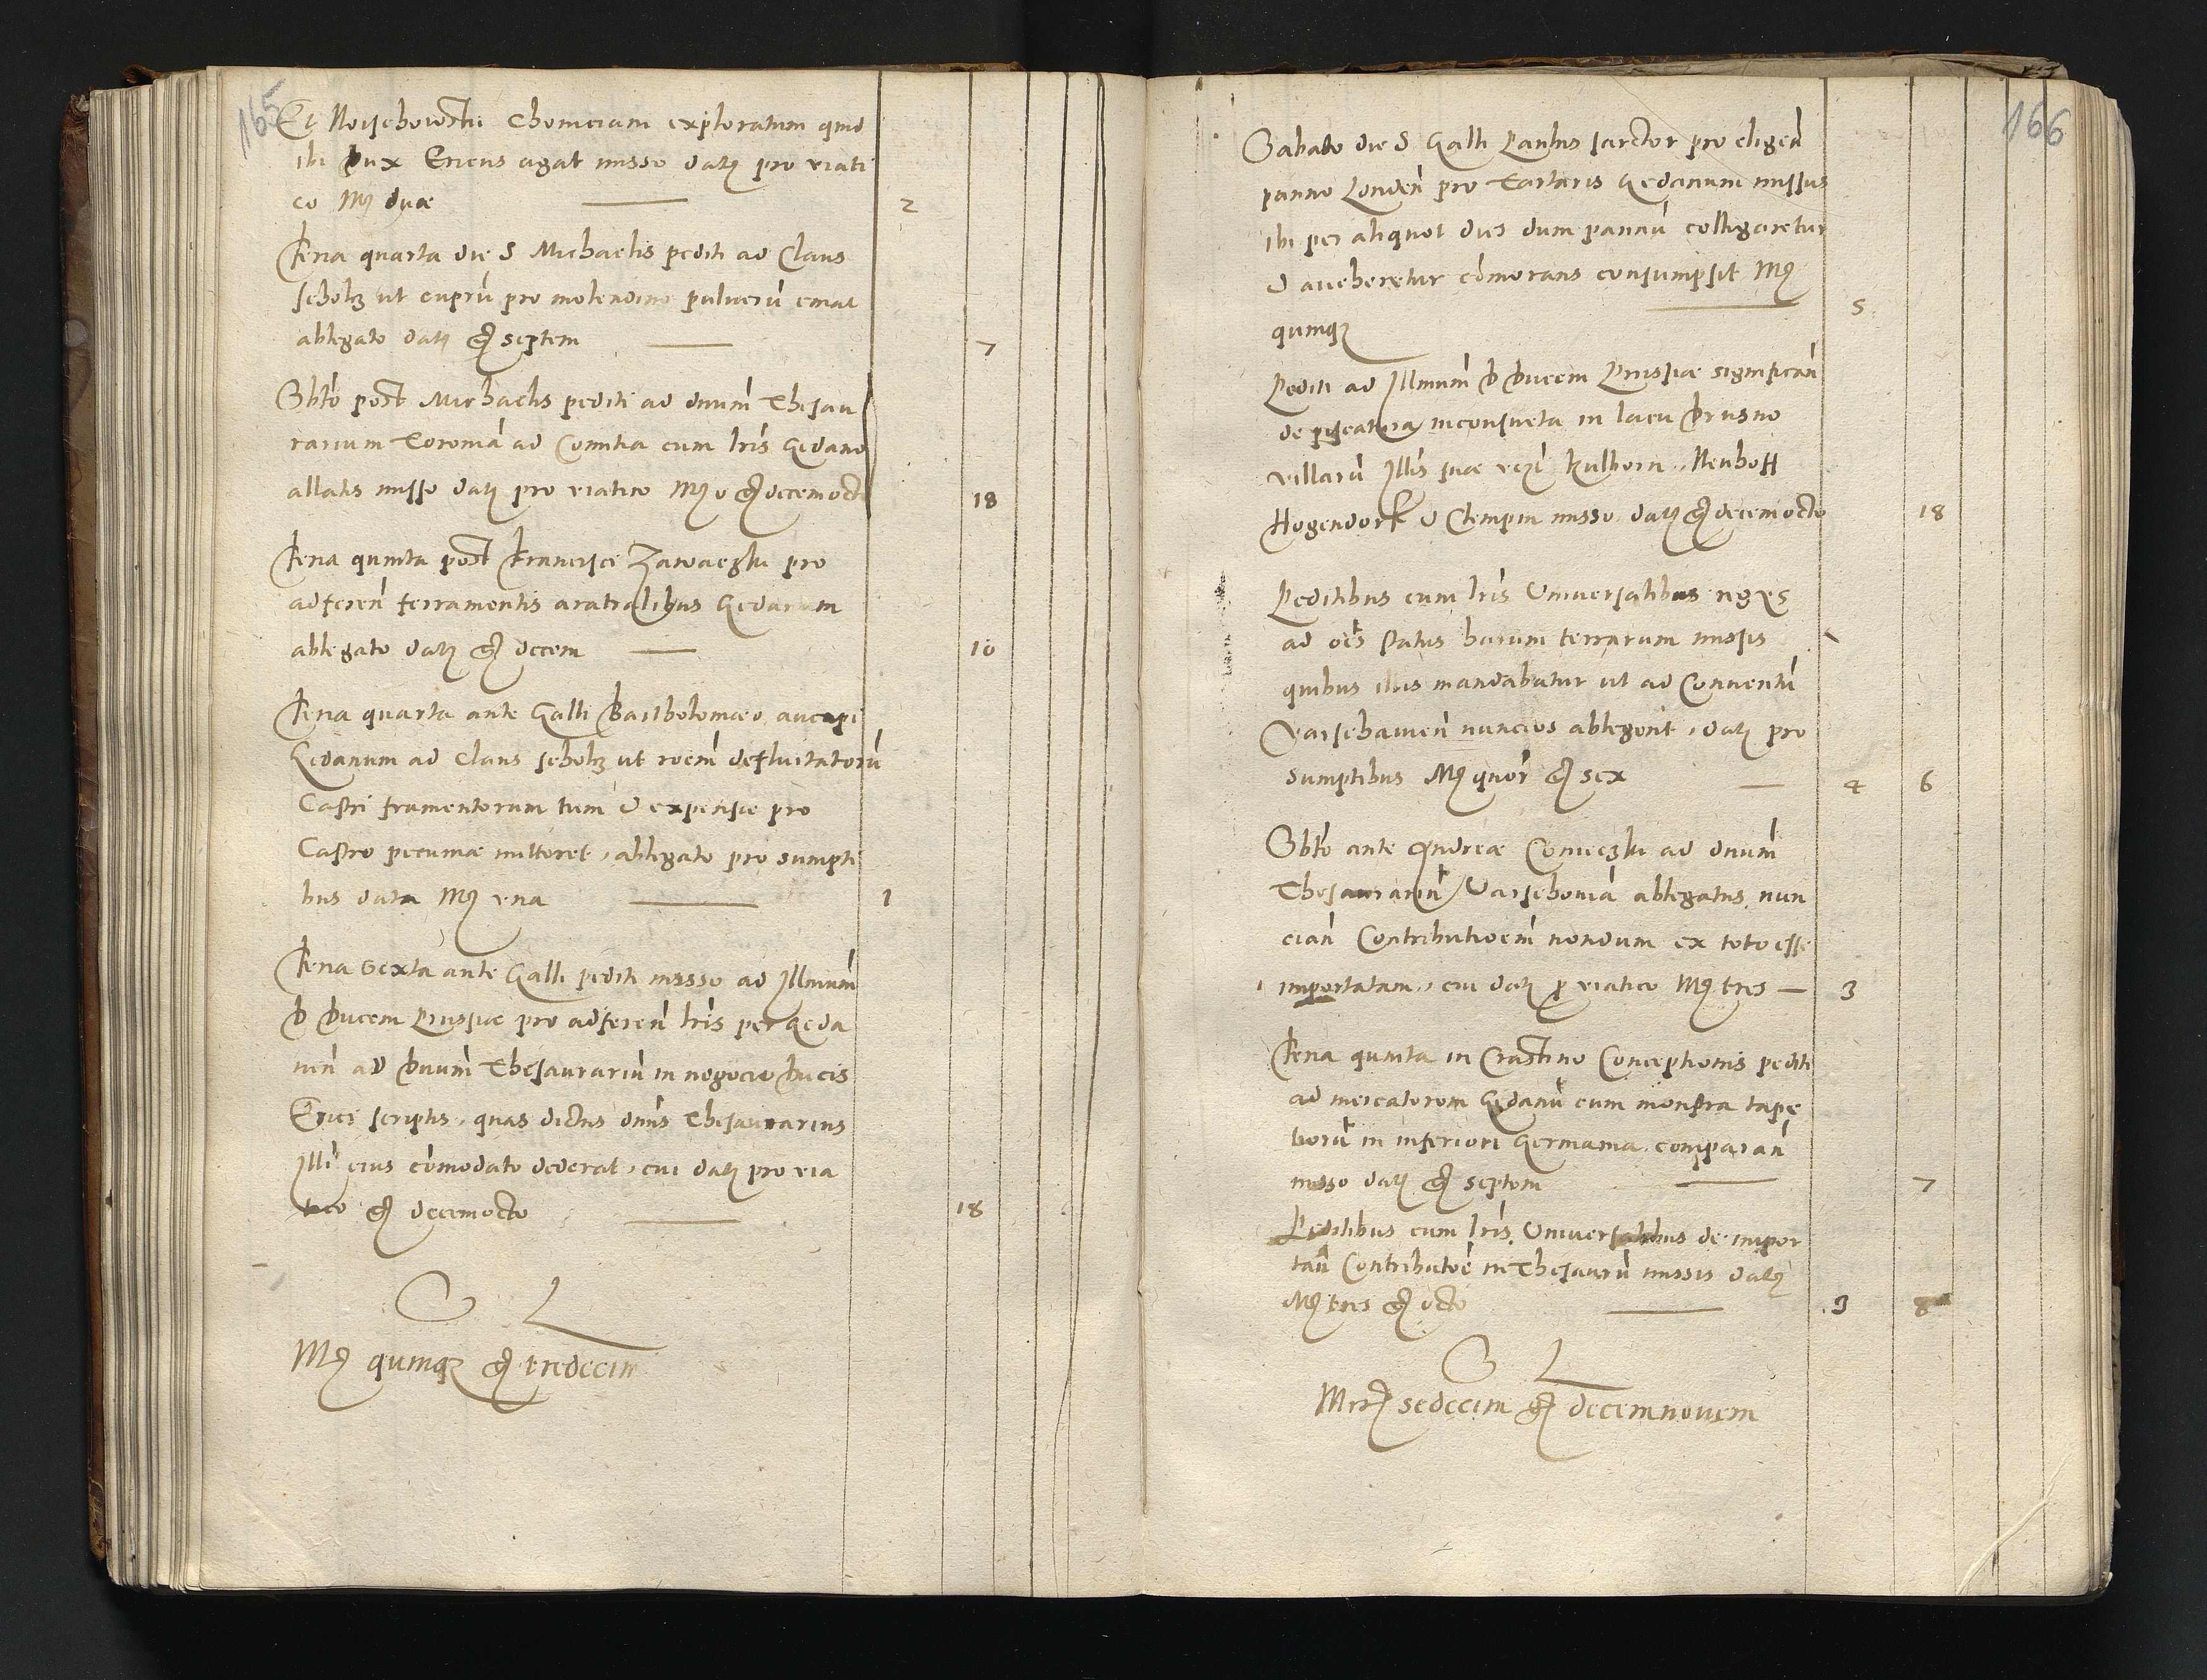 165
Et Noisehowskii Chomeiam exploratum quid
ibi Dux Ericus agat misso datꝫ pro viati
co Mꝫ duæ 2
Feria quarta die S Michaelis pediti ad Claus
scholtz ut cuprū pro molendino pulverū emat
ablegato datꝫ gꝫ septem 7
Sbtō post Michaelis pediti ad dnum̄ Thesau
rarium Toroniā ad Comitia cum lrīs Gedano
allatis misso datꝫ pro viatico Mꝫ 0 gꝫ decemocto 18
Feria quinta post Francisci Zawaczki pro
adferen̄ ferramentis aratralibus Gedanum
ablegato datꝫ gꝫ decem 10
Feria quarta ante Galli Bartholomæo aucupi
Gedanum ad Claus scholtz ut roem̄ defluitatorū
Castri frumentorum tum & expensæ pro
Castro pecuniæ mitteret, ablegato pro sumpti
bus data Mꝫ vna 1
Feria Sexta ante Galli pediti misso ad Illmum̄
D Ducem Prussiæ pro adferen̄ lrīs per Geda
nen̄ ad Dnum̄ Thesaurariū in negocio Ducis
Erici scriptis, quas dictus dnūs Thesaurarius
Illī eius cōmodato dederat, cui datꝫ pro via
tico gꝫ decemocto 18
S L
Mꝫ quinqꝫ gꝫ tredecim
166
Sabato die S Galli Paulus sartor pro eligen̄
panno Londen̄ pro Tartaris Gedanum missus
ibi per aliquot dies dum pannū colligaretur
& aveheretur cōmorans consumpsit Mꝫ
quinqꝫ 5
Pediti ad Illmum̄ D Ducem Prussiæ significan̄
de piscatura inconsueta in lacu Drusno
villarū Illīs suæ vczī Kulborn, Neuhoff
Hogendorf & Clempin misso datꝫ gꝫ decemocto 18
Peditibus cum lrīs Universalibus
ad oēs status harum terrarum missis
quibus illis mandabatur ut ad Conventū
Varschavien̄ nuncios ablegent, datꝫ pro
sumptibus Mꝫ quōr gꝫ sex 4 6
Sbtō ante Andreæ Conieczki ad dnum̄
Thesaurariū Varschoviā ablegatus, nun
cian̄ Contributioem̄ nondum ex toto esse
importatam, cui datꝫ ꝑ viatico Mꝫ tres 3
Feria quinta in Crastino Conceptionis pediti
ad mercatorem Gedanū cum monstra tape
tiorū in inferiori Germania comparan̄
misso datꝫ gꝫ septem 7
Peditibus cum lrīs Universalibus de impor
tan̄ Contributoē in Thesaurū missis datꝫ
Mꝫ tres gꝫ octo 3 8
S L
Mrꝫ sedecim gꝫ decemnovem